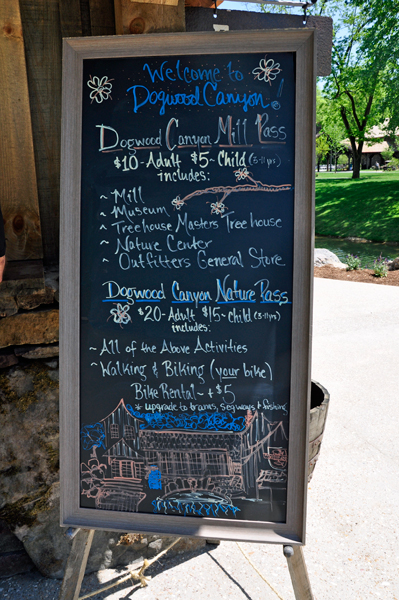 Welcome to
Dogwood Canyon!
Dogwood Canyon Mill Pass
$10-Adult $5-Child (3-11 yrs)
includes:
~ Mill
~ Museum
~ Treehouse Masters Treehouse
~ Nature Center
~ Outfitters General Store
Dogwood Canyon Nature Pass
$20-Adult $15-Child (3-11 yrs)
includes:
~ All of the Above Activities
~ Walking & Biking (your bike)
Bike Rental ~ + $5
* upgrade to trams, segways & fishing